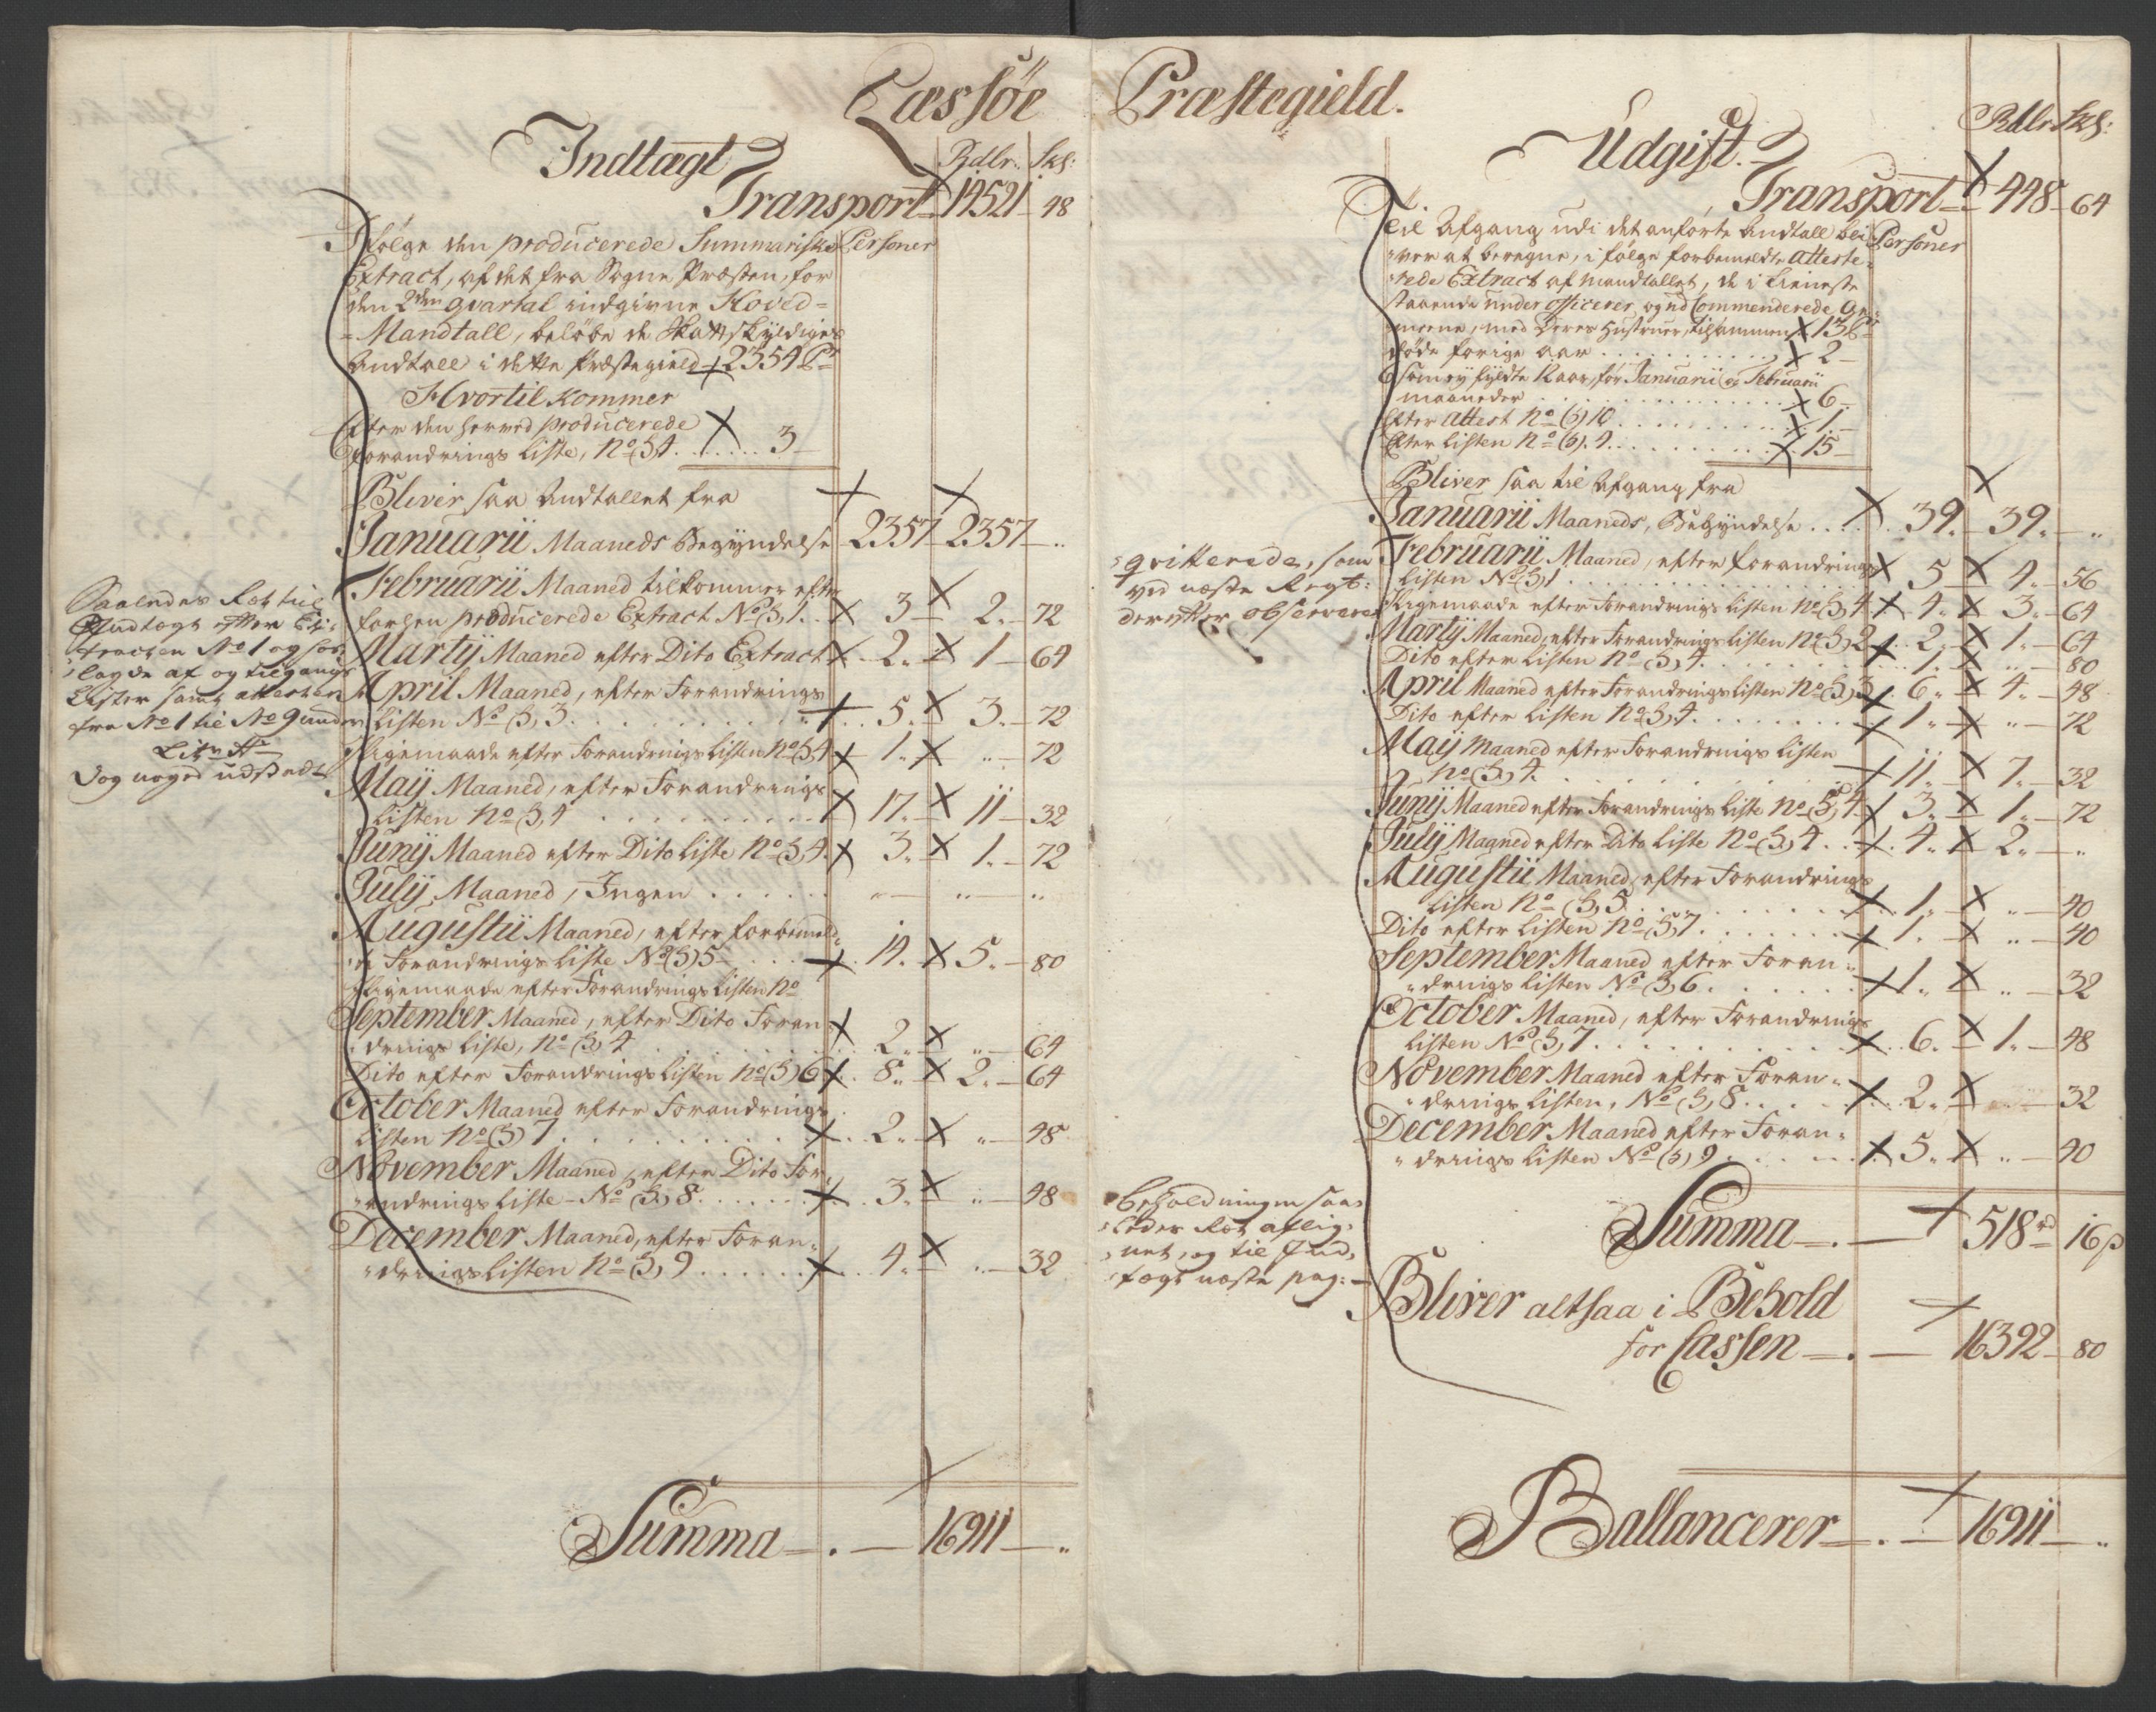 Læssöe Præstegield.
Indtægt
Rdlr: Skl:
Transport 14521 48
Ifölge den producerede Summariske Personer
Extract, af det fra Sogne Præsten, for
den 2den qvartal indgivne Hoved=
=Mandtall, belöbe de Skattskyldiges
Andtall i dette Præstegield 2354 Pr
Hvortil kommer
Efter den herved producerede
Forandrings Liste, No (3, 4 . . . . 3
Bliver saa Andtallet fra
Januarii Maaneds Begÿndelse 2357 2357 "
Februarii Maaned tilkommer efter
forhen producerede Extract No (3, 1. . 3 2. 72
Martij Maaned efter Dito Extract 2. 1 64
April Maaned, efter Forandrings
Listen No (3, 3. . . . . . 5. 3. 72
Ligemaade efter Forandrings Listen No (3, 4 1. " 72
Maij Maaned, efter Forandrings
Listen No (3, 4 . . . . . . 17. 11 32
Junij Maaned efter Dito Liste No (3, 4. 3. 1. 72
July, Maaned, Ingen . . . . . " " "
Augustii Maaned, efter forbemeld=
te Forandrings Liste No (3) 5 . . . 14. 5. 80
Ligemaade efter Forandrings Listen No
September Maaned, efter Dito Foran
"drings Liste, No (3, 4 . . . . 2. " 64
Dito efter Forandrings Listen No (3) 6 8. 2. 64
October Maaned efter Forandrings
Listen No (3) 7. . . . . . 2. " 48
November Maaned, efter Dito For,
"andrings Liste No (3, 8. . . . . 3. " 48
December Maaned, efter Foran=
"drings Listen No (3, 9 . . . . . 4. " 32
Summa 16911 "
Saaledes Rett til
Indtægt efter Ex=
tracten No 1 og for
lagde af og tilgangs
Lister samt attester
fra No 1 til No 9 under
Litr A
Dog noged udstædt
Udgift.
Rdlr: Skl:
Transport 448 64
Til Afgang udi det anförte Andtall bli Personer
"ver at beregne, i fölge forbemeldte Atteste=
"rede Extract af Mandtallet, de i Tieneste
staaende Under Officerer, og nd Commenderede Ge=
"meene, med Deres Hustruer, tilsammen 15 Pr
Döde forige aar . . . . . . . . 2
Som ej fyldte 12 aar, for Januarii og Februarii
maaneder . . . . . . . . . 6
Efter Attest No (3) 10 . . . . . . 1
Efter Listen No (3). 4. . . . . . . 15
Bliver saa til Afgang fra
Januarii Maaneds, Begÿndelse . . . . 39. 39. "
Februarii Maaned, efter Forandrings
Listen No (3, 1 . . . . . . . 5 4. 56
Ligemaade efter Forandrings Listen No (3, 4 4. 3. 64
Martij Maaned, efter Forandrings Listen No (3, 2 2. 1. 64
Dito efter Listen No (3, 4. . . . . . 1. " 80
April Maaned efter Forandrings Listen No (3, 3 6. 4. 48
Dito efter Listen No (3, 4. . . . . . . 1. " 72
Maij Maaned efter Forandrings Listen
No (3, 4. . . . . . . . 11. 7. 32
Junij Maaned efter Forandrings Liste No (3, 4. 3. 1. 72
July Maaned efter Dito Liste No (3, 4 . . 4. 2. "
Augustii Maaned, efter Forandrings
Listen No (3, 5 . . . . . . 1. " 40
Dito efter Listen No (3, 7. . . . . . 1. " 40
September Maaned efter Foran=
"drings Listen No (3, 6. . . . . . 1. " 32
October Maaned, efter Forandrings
Listen No (3, 7. . . . . . . 6. 1. 48
November Maaned efter Foran=
"drings Listen, No (3, 8. . . . . 2. " 32
December Maaned efter Foran=
"drings Listen No (3, 9 . . . . . 5. " 40
Summa 518 rd 16 s
Bliver altsaa i Behold
for Cassen 16392 80
Ballancerer 16911 "
qvitterede, som
ved næste Regt:
derefter observeres
Beholdningen saa=
ledes Rett aflig=
net, og til Ind=
tægt næste pag: